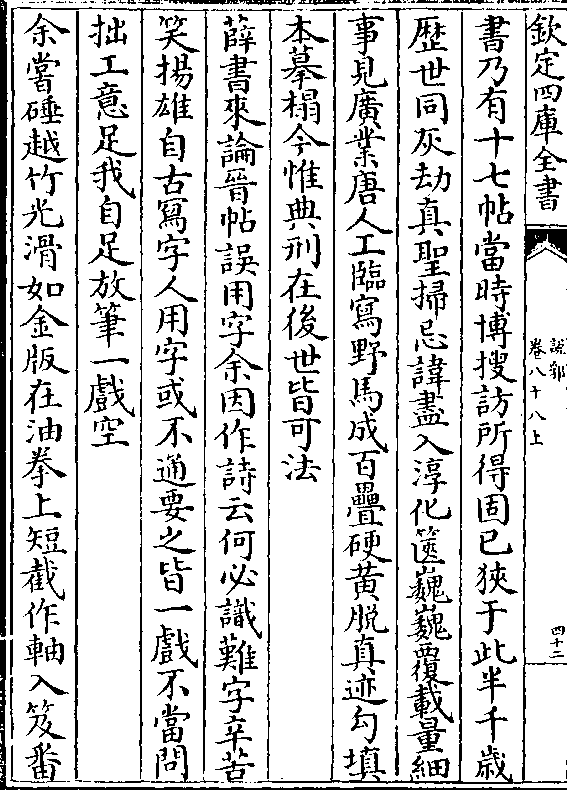 欽定四庫全書
說郛
卷八十八上
四十二
書乃有十七帖當時博搜訪所得固已狹于此半千歲
歴世同灰劫真聖掃忌諱盡入淳化篋巍巍覆載量細
事見廣業唐人工臨寫野馬成百疊硬黄脱真迹勾填
本摹榻今惟典刑在後世皆可法
薛書來論晉帖誤用字余因作詩云何必識難字辛苦
笑揚雄自古寫字人用字或不通要之皆一戲不當問
拙工意足我自足放筆一戲空
余嘗硾越竹光滑如金版在油拳上短截作軸入笈番